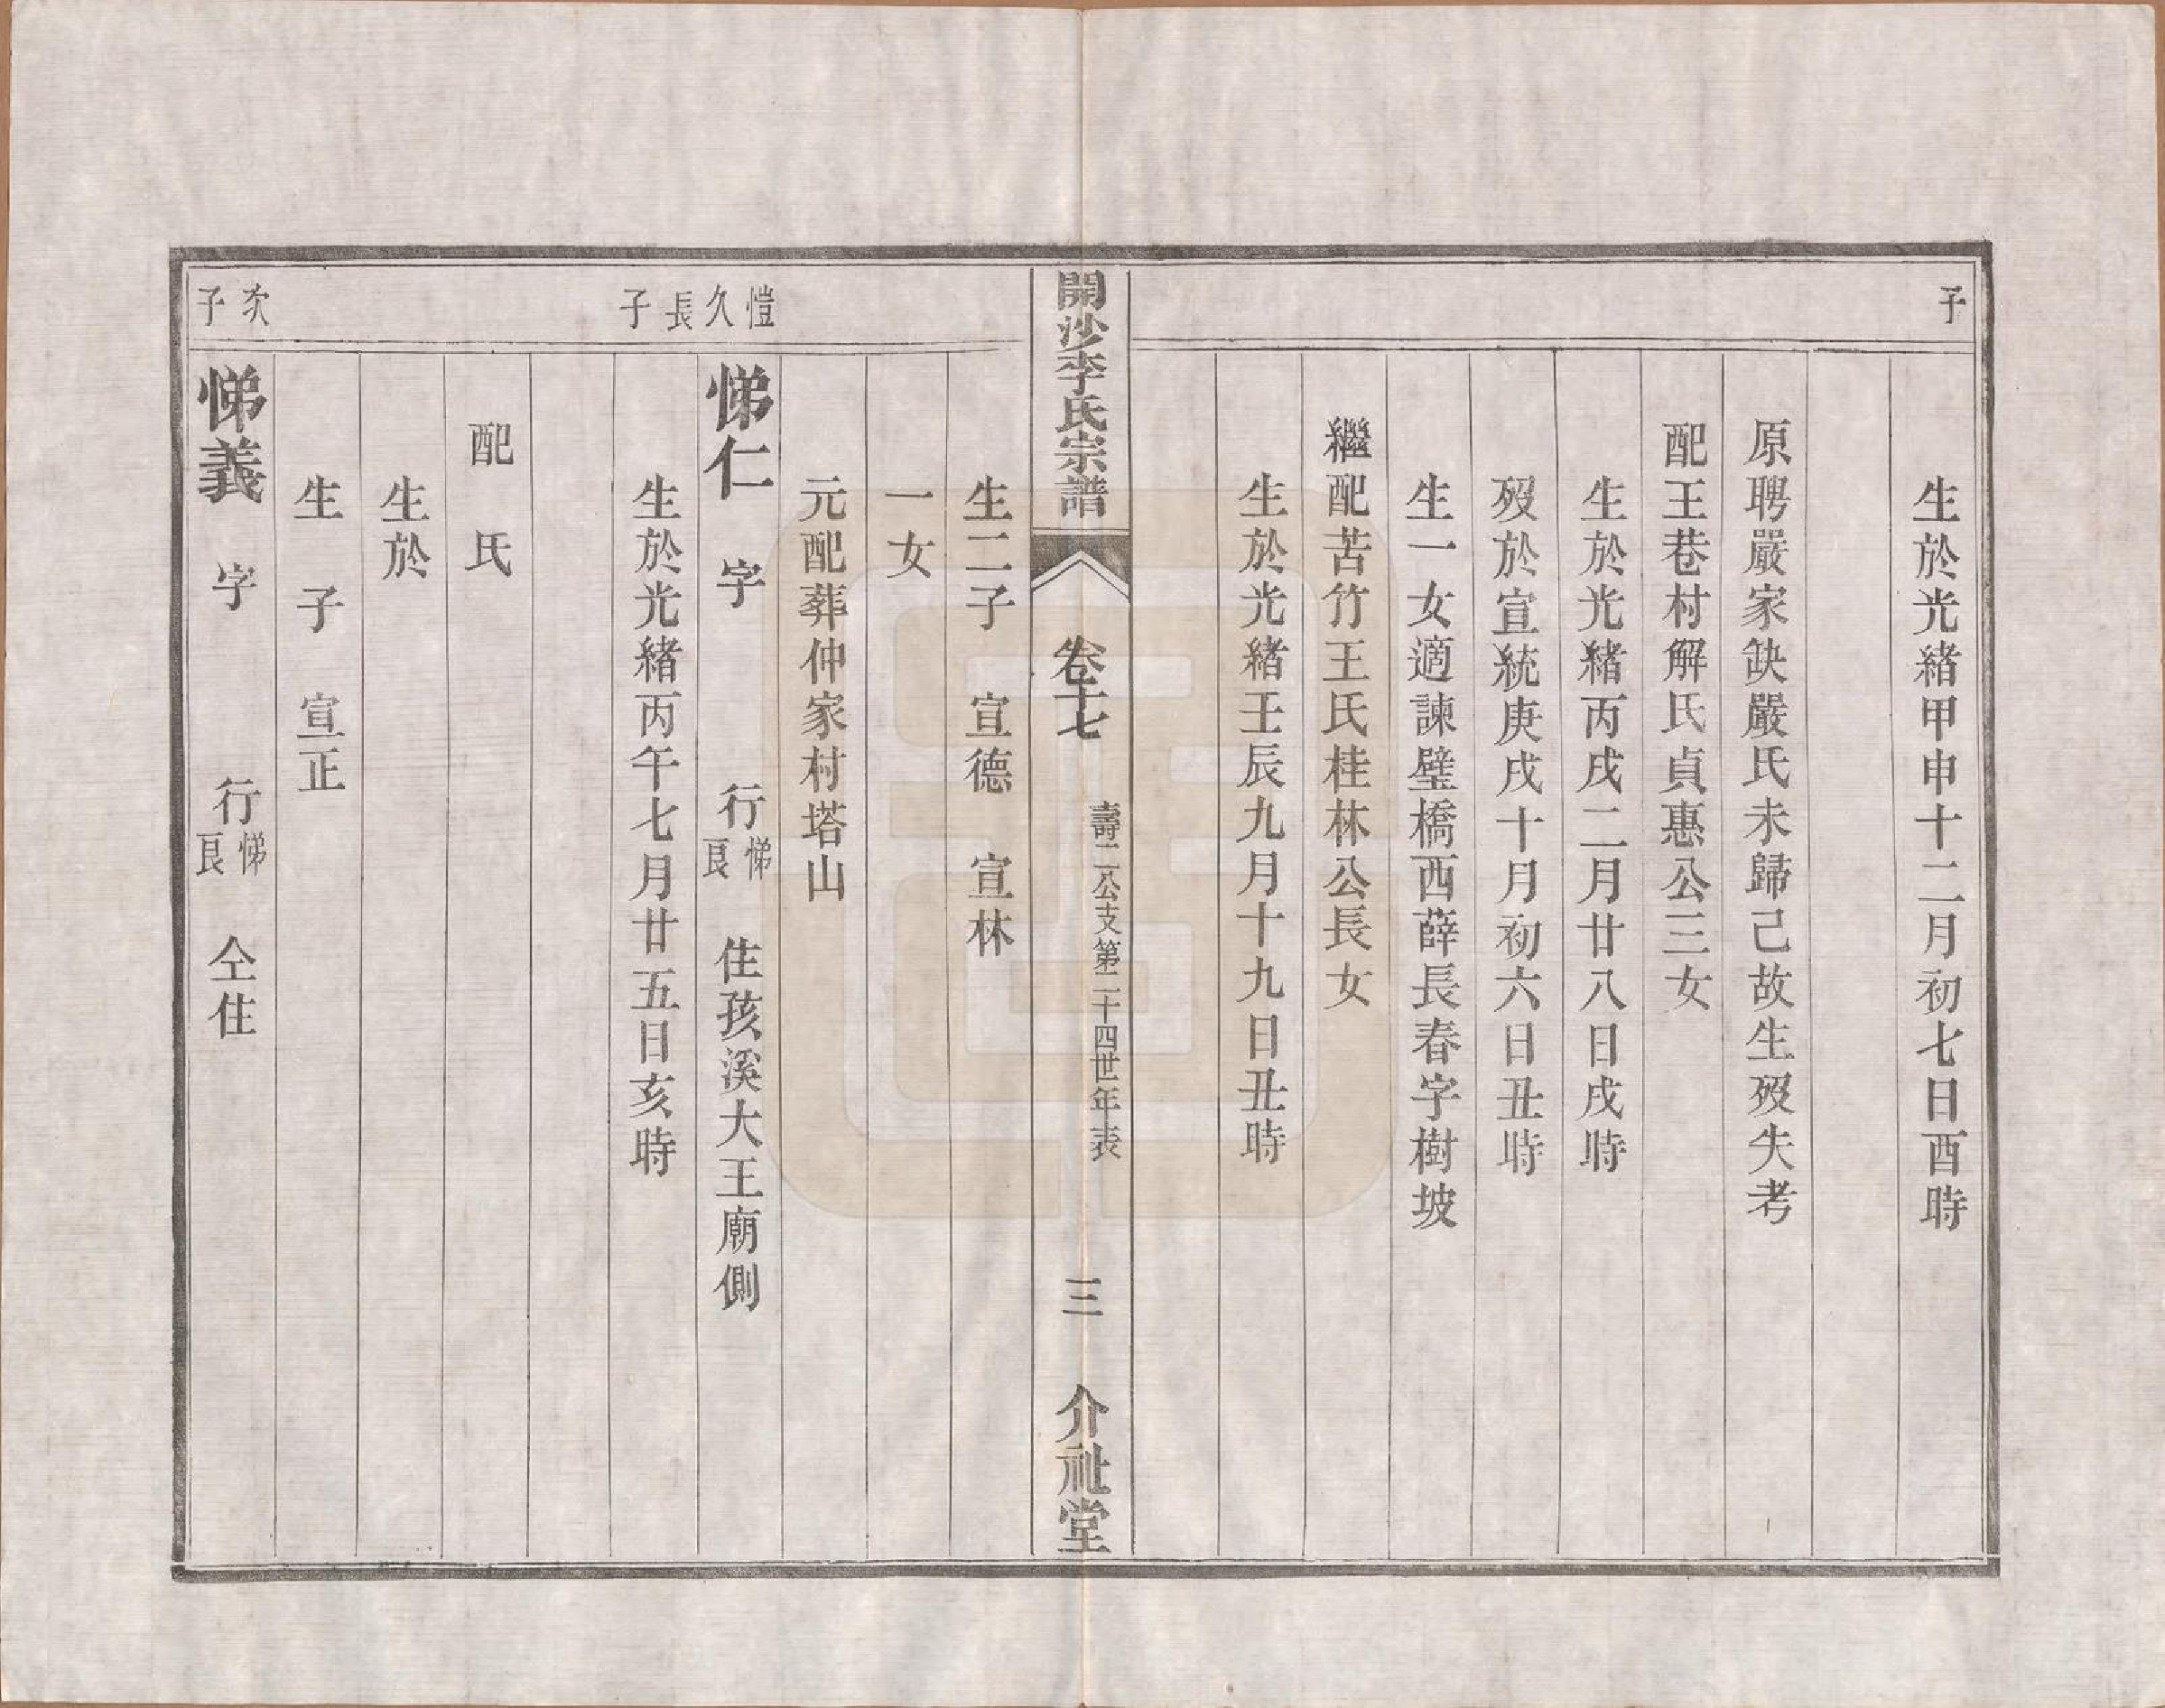 子
生於光緒甲申十二月初七日酉時
原聘嚴家缺嚴氏未歸己故生歿失考
配王巷村解氏貞惠公三女
生於光緒丙戌二月廿八日戌時
歿於宣統庚戌十月初六日丑時
生一女適諫壁橋西薛長春字樹坡
繼配苦竹王氏桂林公長女
生於光緒壬辰九月十九日丑時
開沙李氏宗譜
卷十七
壽二公支第二十四世年表
三
介祉堂
生二子 宣德 宣林
一女
元配葬仲家村塔山
愷久長子
悌仁 字 行悌良 住孩溪大王廟側
生於光緒丙午七月廿五日亥時
配 氏
生於
生 子 宣正
次子
悌義 字 行悌良 仝住